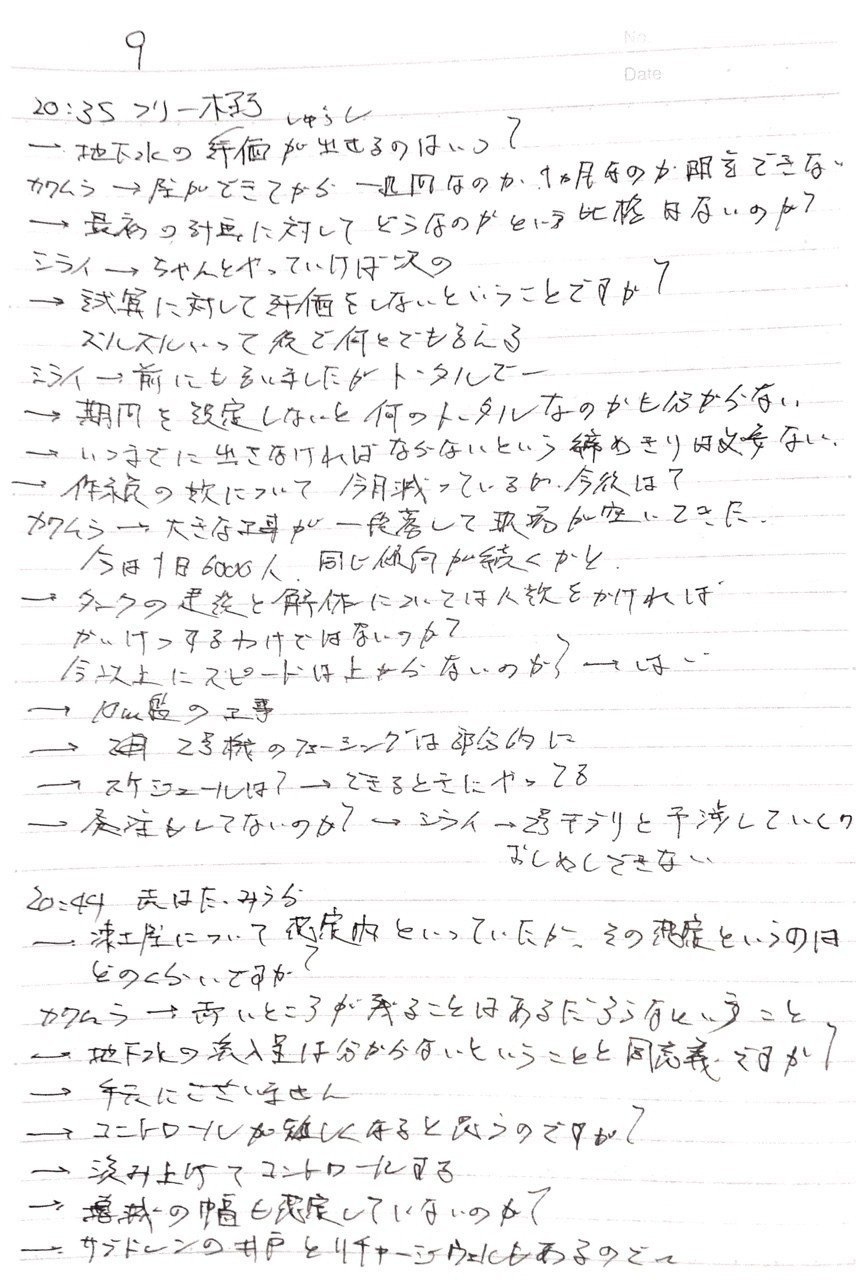 9
No.
Date
20:35 フリー木野 しゅうし
→ 地下水の評価が出せるのはいつ?
カワムラ → 壁ができてから 一週間なのか、1ヵ月なのか明言できない
→ 最初の計画に対してどうなのかという比較はないのか?
ミライ → ちゃんとやっていけば次の
→ 試算に対して評価をしないということですか?
ズルズルいって後で何とでも言える
ミライ → 前にも言いましたがトータルでー
→ 期間を設定しないと何のトータルなのかも分からない
→ いつまでに出さなければならないという締めきりは必要ない.
→ 作業員の数について 今月減っているが、今後は?
カワムラ → 大きな工事が一段落して現場が空いてきた.
今は1日6000人. 同じ傾向が続くかと.
→ タンクの建設と解体については人数をかければ
かいけつするわけではないのか?
今以上にスピードは上がらないのか? → はい
→ 10m盤の工事
→ 2号機のフェーシングは部分的に
→ スケジュールは? → できるときにやってる
→ 発注もしてないのか? → ミライ → 2号ガラリと干渉していくの
おしめしできない
20:44 赤はた、みうら
→ 凍土壁について想定内といっていたが、その想定というのは
どのくらいですか?
カワムラ → 高いところが残ることはあるだろうなということ
→ 地下水の流入量は分からないということと同意義ですか?
→ 手元にございません
→ コントロールが難しくなると思うのですが?
→ 汲み上げてコントロールする
→ 増減の幅も想定していないのか?
→ サブドレンの井戸とリチャージウェルもあるので〜